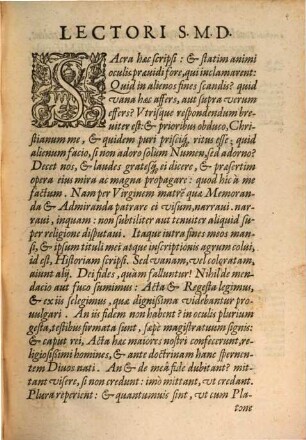 LECTORI S.M.D.
SAcra hæc scripsi: & statim animi
oculis præuidi fore, qui inclamarent:
Quid in alienos fines scandis? quid
vana hæc affers, aut supra verum
effers? Vtrisque respondendum bre-
uiter est: & prioribus obduco, Chri-
stianum me, & quidem puri prisciq́; ritus esse: quid
alienum facio, si non adoro solum Numen, sed adorno?
Decet nos, & laudes gratesq́; ei dicere, & præsertim
opera eius mira ac magna propagare: quod hic à me
factum. Nam per Virginem matrẽ quæ Memoran-
da & Admiranda patrare ei visum, narraui. nar-
raui, inquam: non subtiliter aut tenuiter aliquid su-
per religione disputaui. Itaque intra fines meos man-
si, & ipsum tituli mei atque inscriptionis agrum colui,
id est, Historiam scripsi. Sed vanam, vel coloratam,
aiunt alij. Dei fides, quàm falluntur! Nihil de men-
dacio aut fuco sumimus: Acta & Regesta legimus,
& ex iis selegimus, quæ dignissima videbantur pro-
vulgari. An iis fidem non habent? in oculis plurium
gesta, testibus firmata sunt, sæpè magistratuum signis:
& caput rei, Acta hæc maiores nostri confecerunt, re-
ligiosissimi homines, & ante doctrinam hanc spernen-
tem Diuos nati. An de meâ fide dubitant? mit-
tant visere, si non credunt: imò mittant, vt credant.
Plura reperient: & quantumuis sint, vt cum Pla-
tone